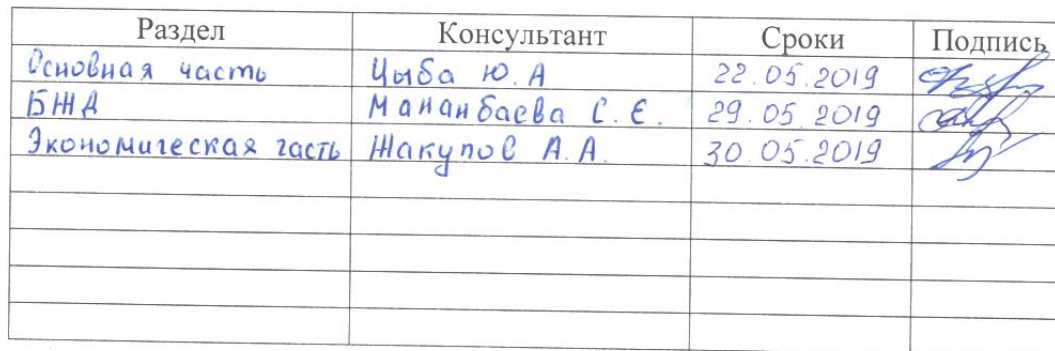 Раздел Консультант Сроки Подпись
Основная часть Цыба Ю.А 22.05.2019
БЖД Мананбаева С.Е. 29.05.2019
Экономическая часть Жакупов А.А. 30.05.2019